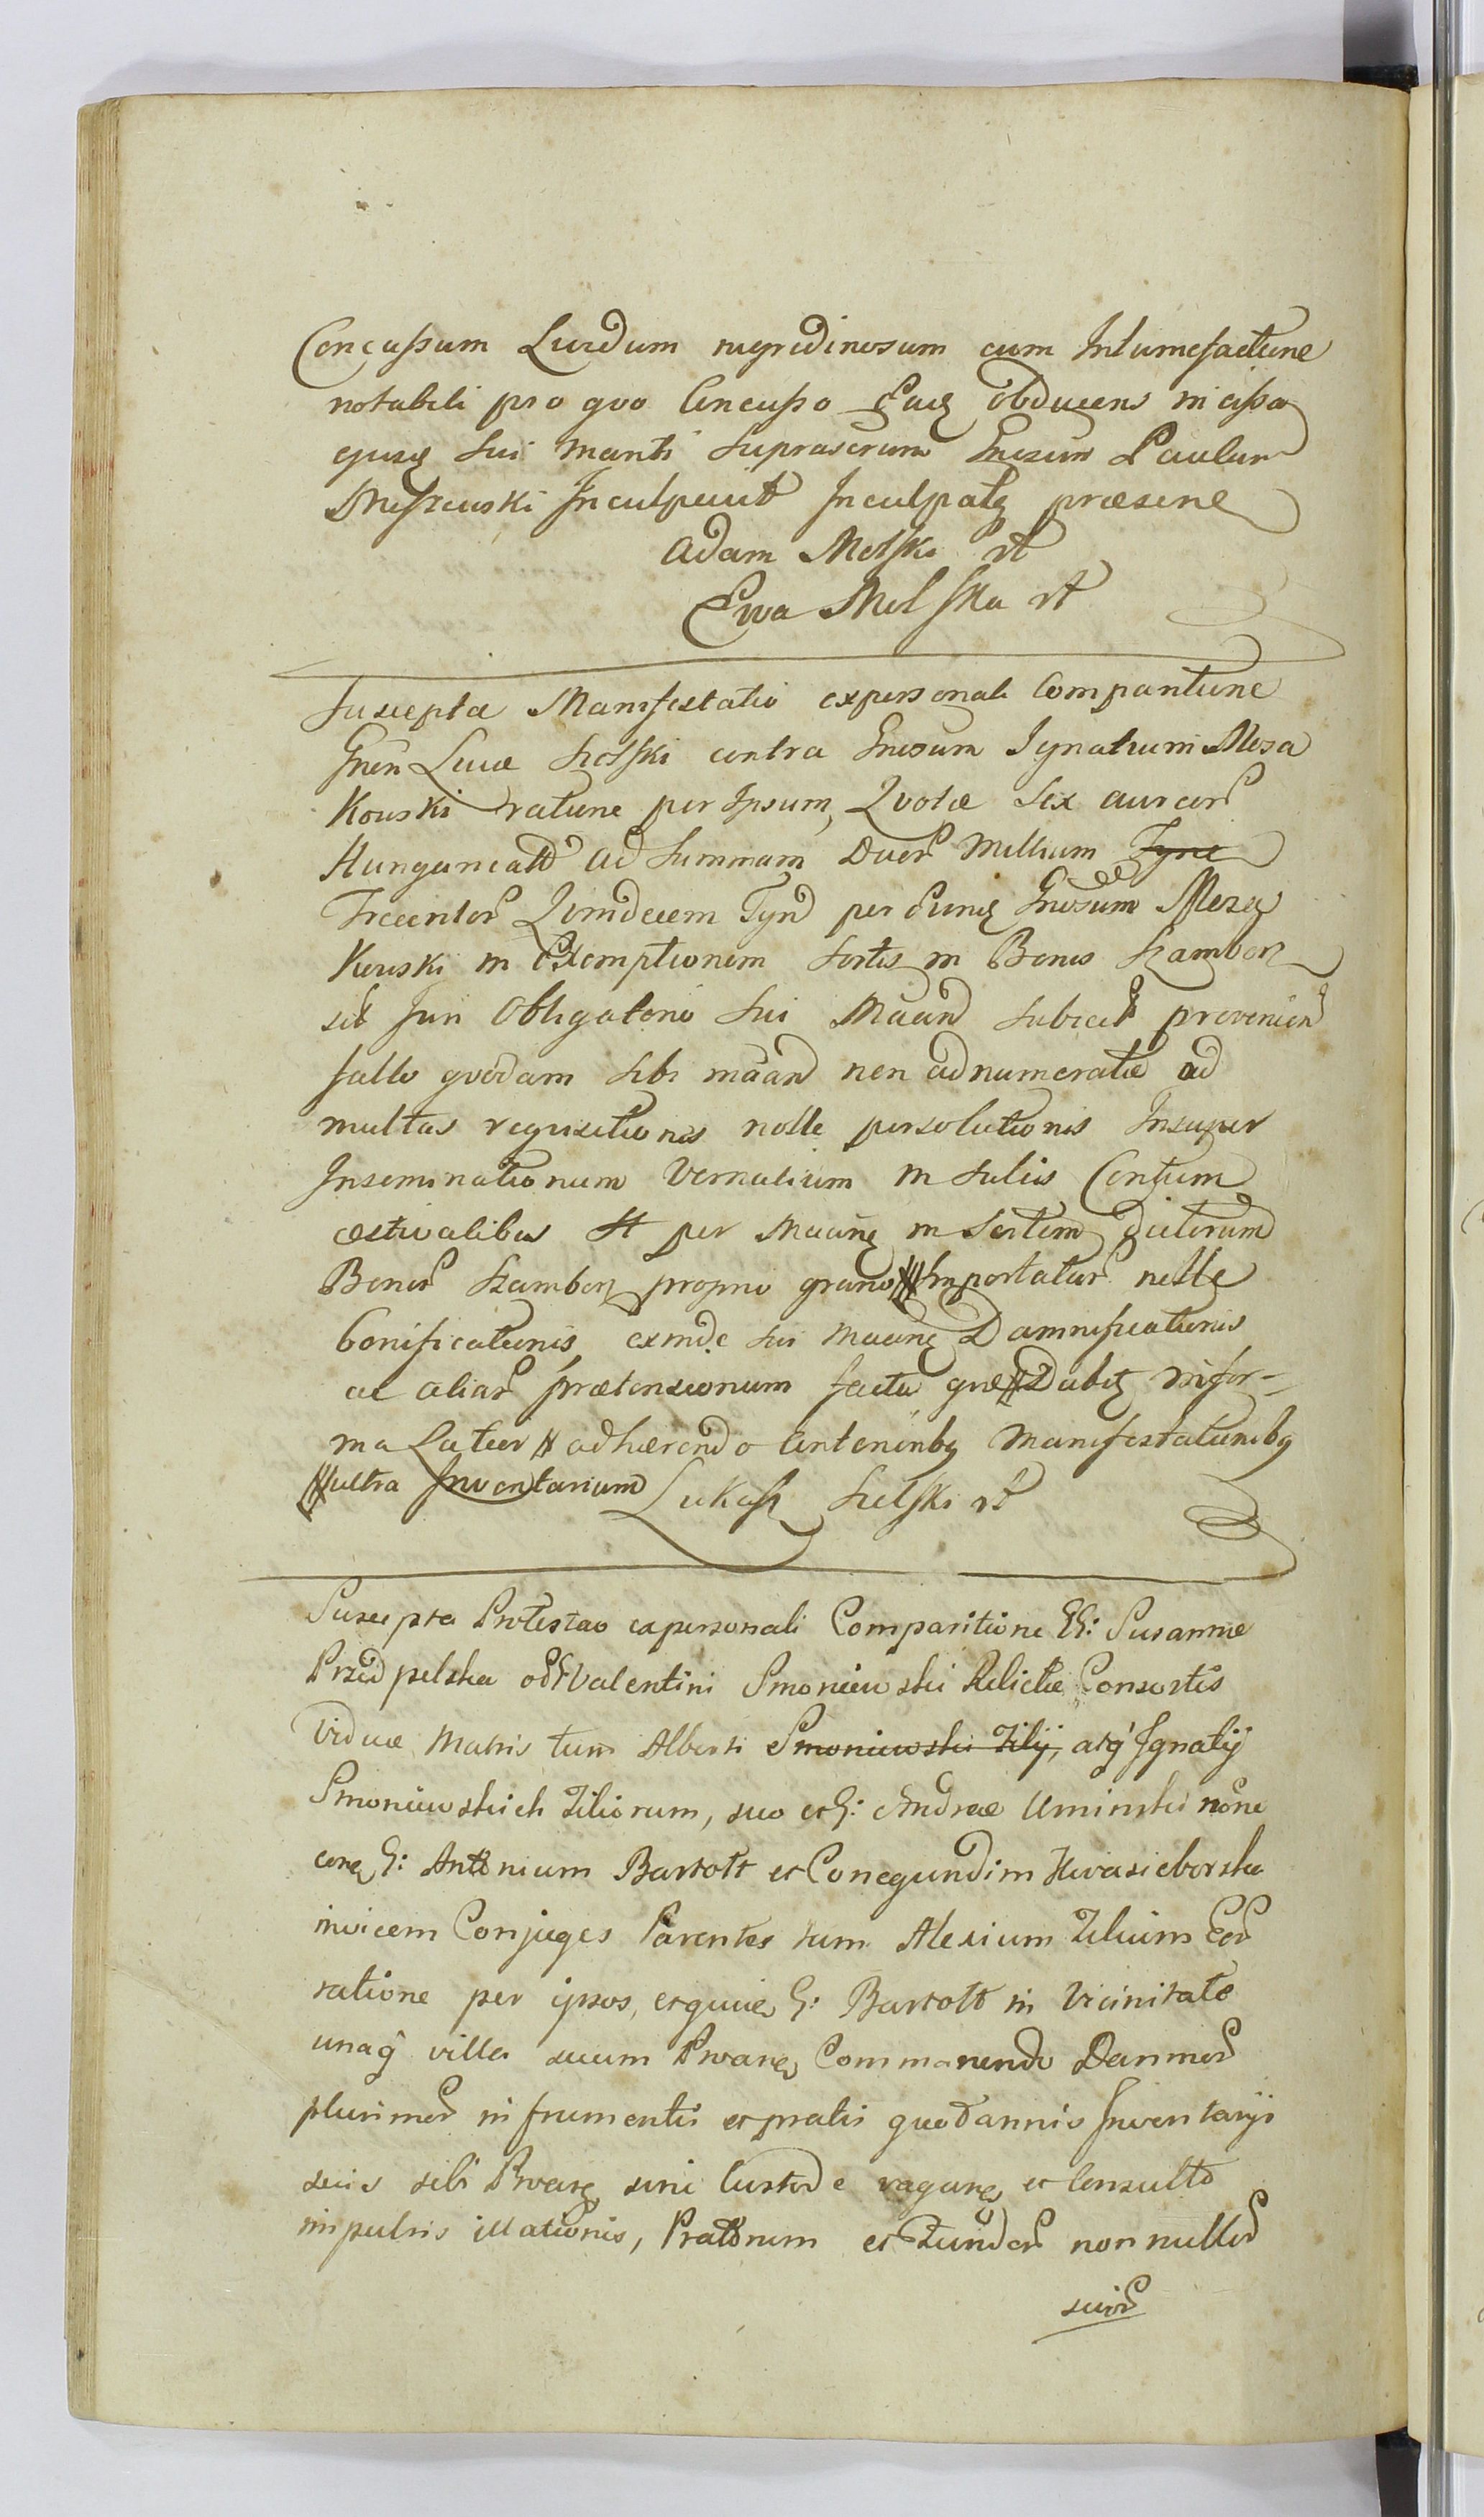 Concussum Lividum nigredinosum cum Intumefactione
notabili pro quo Concusso Eaq obducens in
ejusq sui Mariti suprascrum Gnosum Paulum
Inculpavit Inculpatq praesene
Adam Molski rt
Ewa Molska rt
Suscepta Manifestatio ex personali Comparitione
Gnen Lucae Sielski contra Gnosum Ignatium Meza
kowski ratione per Ipsum Quotae sex aureor
Hungaricalb ad Summam Duor Millium Tyne
Trecentor Quindecem Tyn per eunq Gnosum Meza
kowski in Exemptionem Sortis in Bonis Szambor
sib Juri Obligatorio sui Maan subject provenien
salvo quodam sibi maan non adnumeratae ad
multas requisitiones nolle persolutionis Insuper
Inseminationum Vernalium in suliis Centum
aestivalibus et per Maanq in Sortem dictorum
Bonor Szambor proprio grano # Importatar nolle
bonificationis, exinde sui Maanq Damnificationis
ac aliar praetensionum facta quae Dabit infor-
ma Latior # adhaerendo anterioribq Manifestationibq
# ultra Inventarium
Lukasz Sielski rt
Suscepta Protestao ex personali Comparitione GG: Susannae
Przedpelska od Valentini Smoniewski Relictae Consortis
Viduae Matris tum Alberti Smoniewski Filij, atq Ignatij
Smoniewskich Filiorum, suo et G: Andreae Uminski none
conq G: Antonium Bartolt et Conegundim Kwasieborska
invicem Conjuges Parentes tum Alexium Filium Eor
ratione per ipsos, G: Bartolt in Vicinitate
unaq villa secum Prtanq Commanendo Damnor
plurimor in frumentis et pratis quotannis Inventarijs
suis sibi Prtanq sine Custode vaganq et Consulto
impulsis illationis, Pratorum et Fundor nonnullor
suor